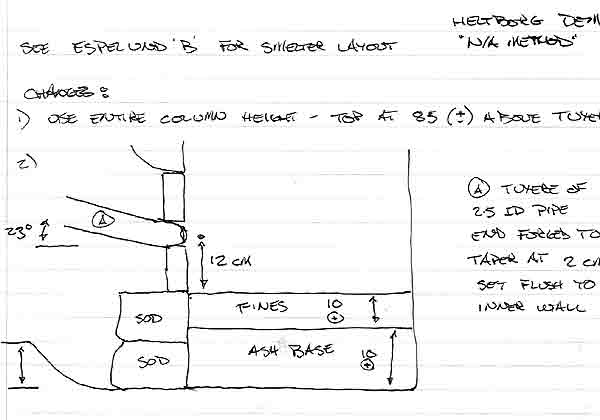 HELTBORG DEM
"N/A METHOD"
SEE ESPELUND 'B' FOR SMELTER LAYOUT
CHANGES:
1) USE ENTIRE COLUMN HEIGHT - TOP AT 85 (±) ABOVE TUYER
2)
A
23°
12 CM
SOD
FINES 10 ±
SOD
ASH BASE 10 ±
A TUYERE OF
25 ID PIPE
END FORGED TO
TAPER AT 2 CM
SET FLUSH TO
INNER WALL